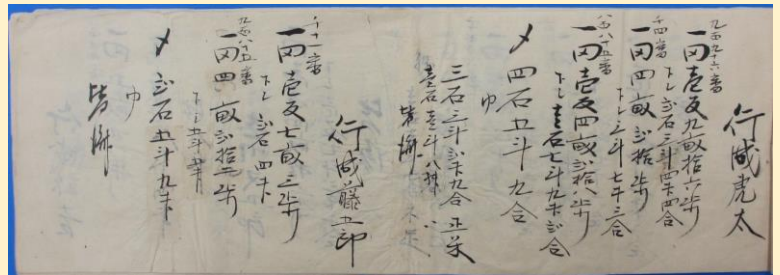 行成虎太
九百九十六番
一田壱反九畝拾六歩
下し弐石三斗四升四合
千四番
一田四畝弐拾歩
下し五斗七升三合
八百八十五番
一田壱反四畝弐拾八歩
下し壱石七斗九升弐合
〆四石五斗九合
内
三石三斗弐升九合 正米
壱石壱斗八升
皆済
行成藤五郎
千十一番
一田壱反七畝三歩
下し弐石四升
九百八十五番
一田四畝弐拾歩
下し五斗五升
〆弐石五斗九升
内
皆済